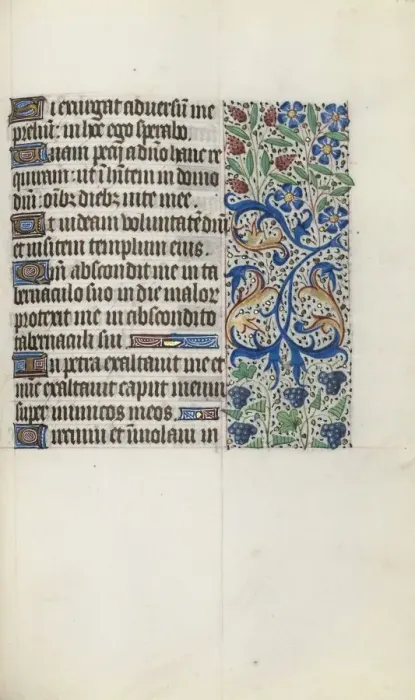 Si exurgat adversũ me
preliũ: in hoc ego sperabo.
Unam pecij a dño hanc re
quiram: ut ĩhĩtem in domo
dñi: oĩbz diebz uite mee.
Ut uideam voluntatẽ dñi
et uisitem templum eius.
Qm̃ abscondit me in ta
bernaculo suo in die malor
protexit me in abscondito
tabernaculi sui
In petra exaltauit me et
nũc exaltauit caput meum
super inimicos meos.
Circuiui et ĩmolaui in